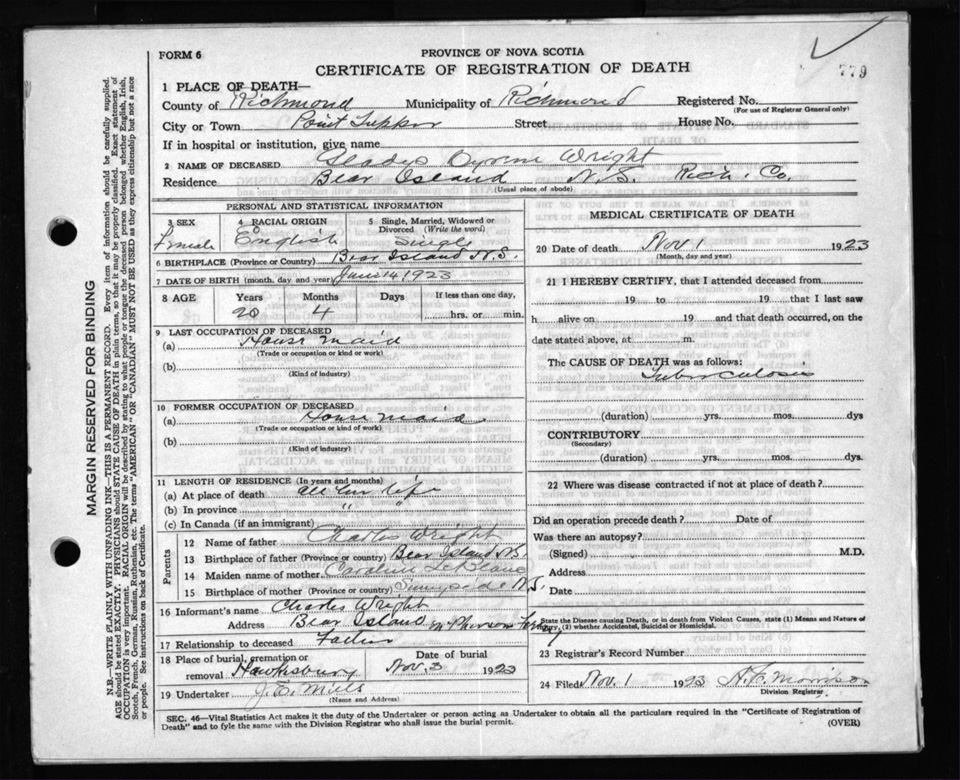 779
FORM 6
PROVINCE OF NOVA SCOTIA
CERTIFICATE OF REGISTRATION OF DEATH
MARGIN RESERVED FOR BINDING
N.B.—WRITE PLAINLY WITH UNFADING INK—THIS IS A PERMANENT RECORD. Every item of information should be carefully supplied.
AGE should be stated EXACTLY. PHYSICIANS should STATE CAUSE OF DEATH in plain terms, so that it may be properly classified. Exact statement of
OCCUPATION is very important. RACIAL ORIGIN will be described by stating to what people or tongue the deceased person belonged whether English, Irish,
Scotch, French, German, Russian, Ruthenian, etc. The terms "AMERICAN" OR "CANADIAN" MUST NOT BE USED as they express citizenship but not a race
or people. See instructions on back of Certificate.
1 PLACE OF DEATH—
County of Richmond Municipality of Richmond Registered No.
(For use of Registrar General only)
City or Town Point Tupper Street House No.
If in hospital or institution, give name
2 NAME OF DECEASED Gladys Wright
Residence Bear Island N.S. Rich. Co.
(Usual place of abode)
PERSONAL AND STATISTICAL INFORMATION
3 SEX 4 RACIAL ORIGIN 5 Single, Married, Widowed or Divorced (Write the word)
Female English Single
6 BIRTHPLACE (Province or Country) Bear Island N.S.
7 DATE OF BIRTH (month, day and year) June 14 1923
8 AGE Years Months Days If less than one day,
20 4 hrs. or min.
9 LAST OCCUPATION OF DECEASED
(a) House maid
(Trade or occupation or kind or work)
(b)
(Kind of industry)
10 FORMER OCCUPATION OF DECEASED
(a) House maid
(Trade or occupation or kind or work)
(b)
(Kind of industry)
11 LENGTH OF RESIDENCE (In years and months)
(a) At place of death all her life
(b) In province " "
(c) In Canada (if an immigrant)
Parents
12 Name of father Charles Wright
13 Birthplace of father (Province or country) Bear Island N.S.
14 Maiden name of mother Caroline LeBlanc
15 Birthplace of mother (Province or country) Sunnyside N.S.
16 Informant's name Charles Wright
Address Bear Island McPherson Ferry
17 Relationship to deceased Father
18 Place of burial, cremation or removal Hawkesbury Date of burial Nov. 3 1923
19 Undertaker J. E. Mills
(Name and Address)
MEDICAL CERTIFICATE OF DEATH
20 Date of death Nov 1 1923
(Month, day and year)
21 I HEREBY CERTIFY, that I attended deceased from
19 to 19 that I last saw
h alive on 19 and that death occurred, on
date stated above, at m.
The CAUSE OF DEATH was as follows:
Tuberculosis
(duration) yrs. mos. dys
CONTRIBUTORY
(Secondary)
(duration) yrs. mos. dys.
22 Where was disease contracted if not at place of death?
Did an operation precede death? Date of
Was there an autopsy?
(Signed) M.D.
Address
Date
State the Disease causing Death, or in death from Violent Causes, state (1) Means and Nature of Injury; (2) whether Accidental, Suicidal or Homicidal.
23 Registrar's Record Number
24 Filed Nov. 1 1923 H. C. Morrison
Division Registrar
SEC. 46—Vital Statistics Act makes it the duty of the Undertaker or person acting as Undertaker to obtain all the particulars required in the "Certificate of Registration of
Death" and to fyle the same with the Division Registrar who shall issue the burial permit. (OVER)